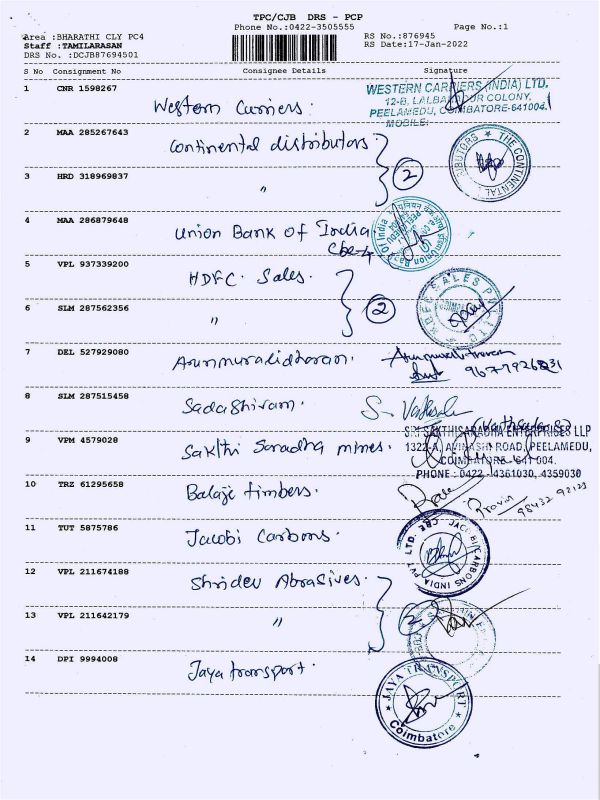 TPC/CJB DRS - PCP
Phone No.:0422-3505555 Page No.:1
Area :BHARATHI CLY PC4 RS No.:876945
Staff :TAMILARASAN RS Date:17-Jan-2022
DRS No. :DCJB87694501
S No Consignment No Consignee Details Signature
1 CNR 1598267 Western Carriers. WESTERN CARRIERS (INDIA) LTD.
12-B, LALBAHADUR COLONY,
PEELAMEDU, COIMBATORE-641004.
MOBILE:
2 MAA 285267643 Continental distributors. THE CONTINENTAL
3 HRD 318969837 " 2
4 MAA 286879648 Union Bank of India Union Bank Of India
Cbe-4
5 VPL 937339200 HDFC Sales.
6 SLM 287562356 " 2
7 DEL 527929080 Arunmuralidharan.
8 SLM 287515458 Sadashivam.
9 VPM 4579028 Sakthi Saradha mines. SRI SAKTHISARADHA ENTERPRISES LLP
1322-A, AVINASHI ROAD, PEELAMEDU,
COIMBATORE - 641 004.
PHONE : 0422 - 4361030, 4359030
10 TRZ 61295658 Balaje timbers. Pravin
98432 92123
11 TUT 5875786 Jacobi Carbons. JACOBI CARBONS INDIA PVT LTD. CBE
12 VPL 211674188 Shridev Abrasives.
13 VPL 211642179 " 2
14 DPI 9994008 Jaya transport. JAYA TRANSPORT
Coimbatore